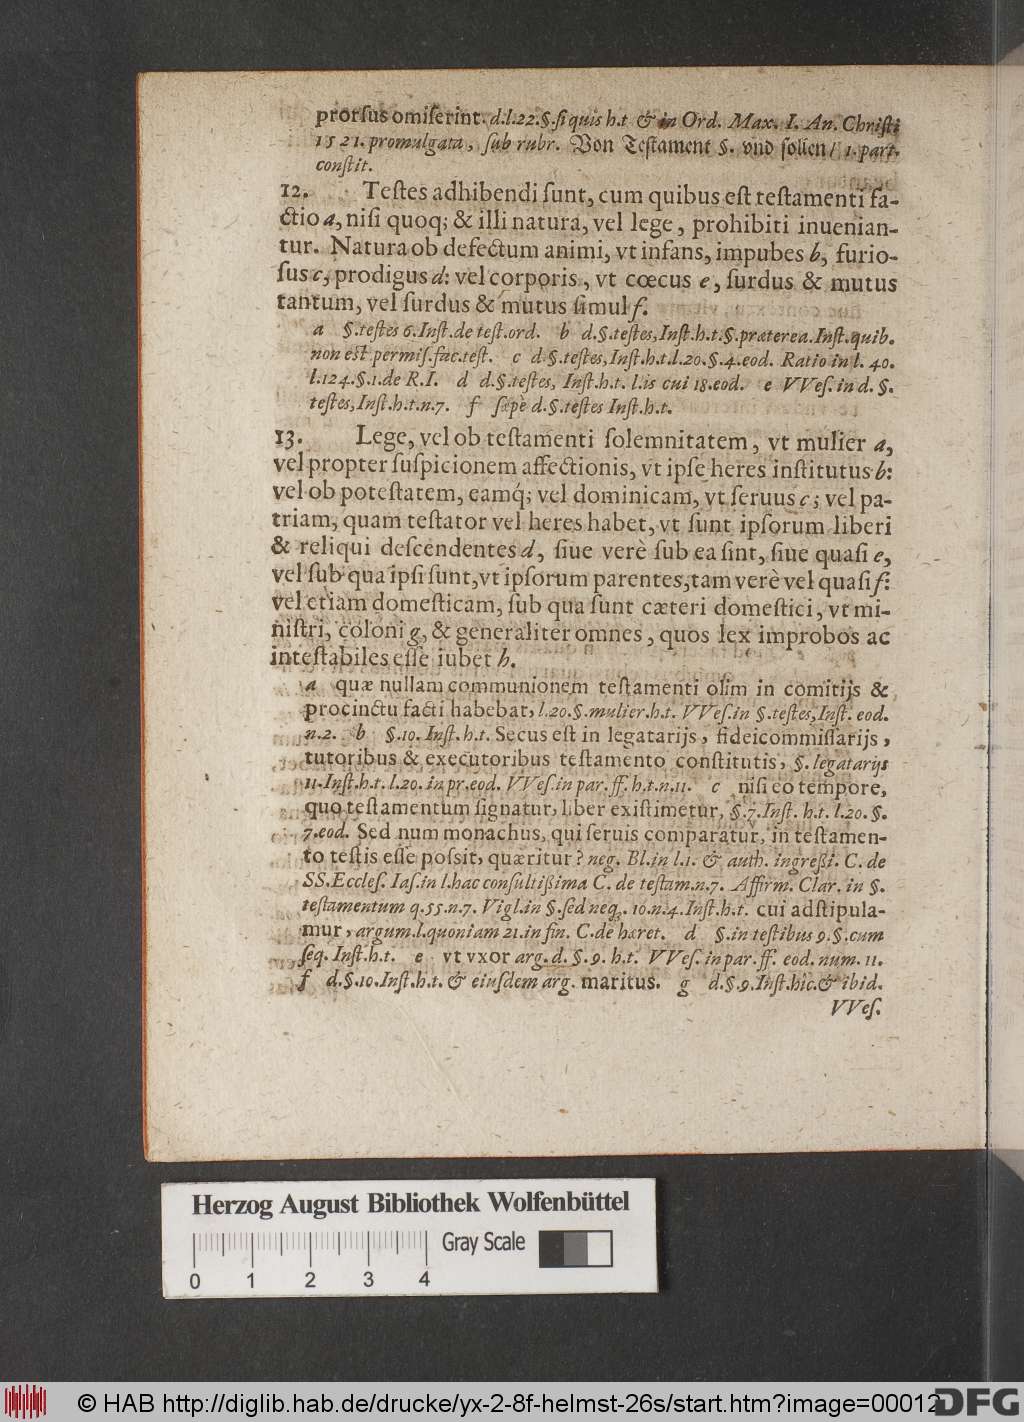 prorſus omiſerint. d.l.22.§.ſi quis h.t & in Ord. Max. I. An. Chriſti
1521. promulgata, ſub rubr. Von Teſtament §. vnd ſollen / 1. part.
conſtit.
12. Teſtes adhibendi ſunt, cum quibus eſt teſtamenti fa-
ctio a, niſi quoq; & illi natura, vel lege, prohibiti inuenian-
tur. Natura ob defectum animi, vt infans, impubes b, furio-
ſus c, prodigus d: vel corporis, vt cœcus e, ſurdus & mutus
tantum, vel ſurdus & mutus ſimul f.
a §.teſtes 6.Inſt.de teſt.ord. b d.§.teſtes,Inſt.h.t.§.præterea.Inſt.quib.
non eſt permiſ.fac.teſt. c d.§.teſtes,Inſt.h.t.l.20.§.4.eod. Ratio in l. 40.
l.124.§.1.de R.I. d d.§.teſtes, Inſt.h.t. l.is cui 18.eod. e VVeſ.in d. §.
teſtes,Inſt.h.t.n.7. f ſæpè d.§.teſtes Inſt.h.t.
13. Lege, vel ob teſtamenti ſolemnitatem, vt mulier a,
vel propter ſuſpicionem affectionis, vt ipſe heres inſtitutus b:
vel ob poteſtatem, eamq́; vel dominicam, vt ſeruus c; vel pa-
triam, quam teſtator vel heres habet, vt ſunt ipſorum liberi
& reliqui deſcendentes d, ſiue verè ſub ea ſint, ſiue quaſi e,
vel ſub qua ipſi ſunt, vt ipſorum parentes, tam verè vel quaſi f:
vel etiam domeſticam, ſub qua ſunt cæteri domeſtici, vt mi-
niſtri, coloni g, & generaliter omnes, quos lex improbos ac
inteſtabiles eſſe iubet h.
a quæ nullam communionem teſtamenti olim in comitijs &
procinctu facti habebat, l.20.§.mulier.h.t. VVeſ.in §.teſtes,Inſt. eod.
n.2. b §.10.Inſt.h.t. Secus eſt in legatarijs, fideicommiſſarijs,
tutoribus & executoribus teſtamento conſtitutis, §.legatarijs
11.Inſt.h.t.l.20. in pr.eod. VVeſ.in par.ff.h.t.n.11. c niſi eo tempore,
quo teſtamentum ſignatur, liber exiſtimetur, §.7.Inſt. h.t. l.20. §.
7.eod. Sed num monachus, qui ſeruis comparatur, in teſtamen-
to teſtis eſſe poſsit, quæritur? neg. Bl.in l.1. & auth. ingreßi. C. de
SS.Eccleſ. Iaſ.in l.hac conſultißima C. de teſtam.n.7. Affirm. Clar. in §.
teſtamentum q.55.n.7. Vigl.in §.ſed neq.. 10.n.4.Inſt.h.t. cui adſtipula-
mur, argum.l.quoniam 21.in fin. C.de hæret. d §.in teſtibus 9.§.cum
ſeq. Inſt.h.t. e vt vxor arg.d.§.9. h.t. VVeſ.in par.ff. eod. num. 11.
f d.§.10.Inſt.h.t. & eiuſdem arg. maritus. g d.§.9.Inſt.hîc.& ibid.
VVeſ.
Herzog August Bibliothek Wolfenbüttel
0 1 2 3 4 Gray Scale
© HAB http://diglib.hab.de/drucke/yx-2-8f-helmst-26s/start.htm?image=00012
DFG